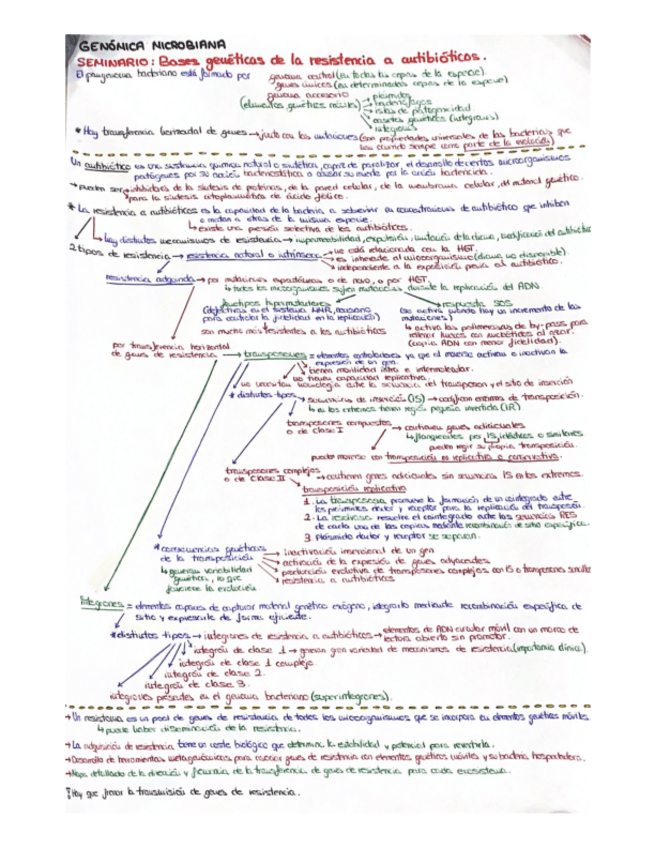 GENÓMICA MICROBIANA
SEMINARIO: Bases genéticas de la resistencia a antibióticos.
El pangenoma bacteriano está formado por genoma central (en todas las cepas de la especie).
genes únicos (en determinadas cepas de la especie)
genoma accesorio
(elementos genéticos móviles)
plásmidos
bacteriófagos
islas de patogenicidad
casetes genéticos (integrones)
integrones
* Hay transferencia horizontal de genes → junto con las mutaciones (son propiedades universales de las bacterias que
han ocurrido siempre como parte de la evolución)
Un antibiótico es una sustancia química natural o sintética, capaz de paralizar el desarrollo de ciertos microorganismos
patógenos por su acción bacteriostática o causar su muerte por la acción bactericida.
→ pueden ser inhibidores de la síntesis de proteínas, de la pared celular, de la membrana celular, del material genético.
para la síntesis citoplasmática de ácido fólico.
* La resistencia a antibióticos es la capacidad de la bacteria a sobrevivir en concentraciones de antibiótico que inhiben
o matan a otras de la misma especie.
↳ existe una presión selectiva de los antibióticos.
↳ hay distintos mecanismos de resistencia → impermeabilidad, expulsión, mutación de la diana, modificación del antibiótico
2 tipos de resistencia → resistencia natural o intrínseca → no está relacionada con la HGT.
→ es inherente al microorganismo (diana no disponible).
→ independiente a la exposición previa al antibiótico.
resistencia adquirida → por mutaciones espontáneas o de novo, o por HGT.
↳ todos los microorganismos sufren mutaciones durante la replicación del ADN
fenotipos hipermutadores
(defectivos en el sistema MMR, necesario
para controlar la fidelidad en la replicación)
son mucho más resistentes a los antibióticos
respuesta SOS
(se activa cuando hay un incremento de las
mutaciones)
↳ activa las polimerasas de by-pass para
rellenar huecos con nucleótidos al azar.
(copia ADN con menor fidelidad).
por transferencia horizontal
de genes de resistencia → transposones = elementos controladores ya que al moverse activan o inactivan la
expresión de un gen.
tienen movilidad intra e intermolecular.
no tienen capacidad replicativa.
no necesitan homología entre la secuencia del transposon y el sitio de inserción
* distintos tipos → secuencias de inserción (IS) → codifican enzimas de transposición.
↳ en los extremos tienen región pequeña invertida (IR)
transposones compuestos
o de clase I → contienen genes adicionales
↳ flanqueados por IS idénticas o similares
puede regir su propia transposición.
puede moverse con transposición no replicativa o conservativa.
transposones complejos
o de clase II → contienen genes adicionales sin secuencias IS en los extremos.
transposición replicativa
1. La transposasa promueve la formación de un cointegrado entre
los plásmidos dador y receptor para la replicación del transposón.
2. La resolvasa resuelve el cointegrado entre las secuencias RES
de cada una de las copias mediante recombinación de sitio específica.
3 Plásmido dador y receptor se separan.
* consecuencias genéticas
de la transposición
↳ generan variabilidad
genética, lo que
favorece la evolución
→ inactivación insercional de un gen
→ activación de la expresión de genes adyacentes
→ producción evolutiva de transposones complejos con IS o transposones sencillos
→ resistencia a antibióticos
Integrones = elementos capaces de capturar material genético exógeno, integrarlo mediante recombinación específica de
sitio y expresarlo de forma eficiente.
* distintos tipos → integrones de resistencia a antibióticos → elementos de ADN circular móvil con un marco de
lectura abierto sin promotor.
integrón de clase 1 → generan gran variedad de mecanismos de resistencia (importancia clínica).
integrón de clase 1 complejo.
integrón de clase 2.
integrón de clase 3.
integrones pesados en el genoma bacteriano (superintegrones).
→ Un resistoma es un pool de genes de resistencia de todos los microorganismos que se incorpora en elementos genéticos móviles.
↳ puede haber diseminación de la resistencia.
→ La adquisición de resistencia tiene un coste biológico que determina la estabilidad y potencial para revertirla.
→ Desarrollo de herramientas metagenómicas para asociar genes de resistencia con elementos genéticos móviles y su bacteria hospedadora.
→ Mapa detallado de la dirección y frecuencia de la transferencia de genes de resistencia para cada ecosistema.
Hay que frenar la transmisión de genes de resistencia.